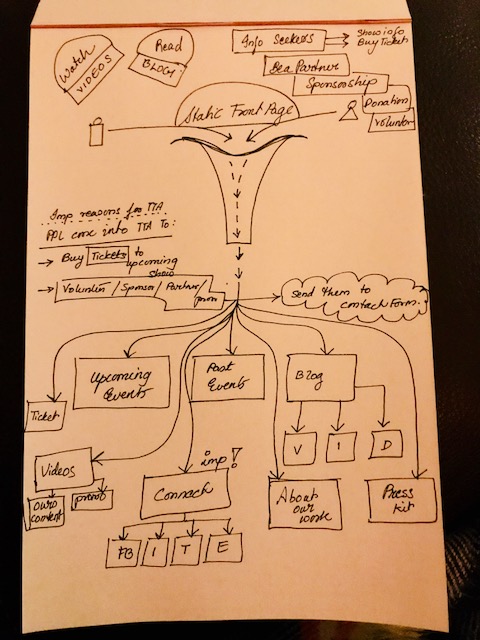 Watch
VIDEOS
Read
BLOG
Info Seekers
Show info
Buy Ticket
Be a Partner
Sponsorship
Donation
Volunteer
Static Front Page
Imp reasons for TTA
PPL come into TTA To:
→ Buy Tickets to
upcoming
show
→ Volunteer / Sponsor / Partner /
Send them to
contact Form.
Upcoming
Events
Past
Events
Blog
Ticket
V I D
Videos
imp!
ours
content
promo
Connect
About
our
work
Press
Kit
FB I T E